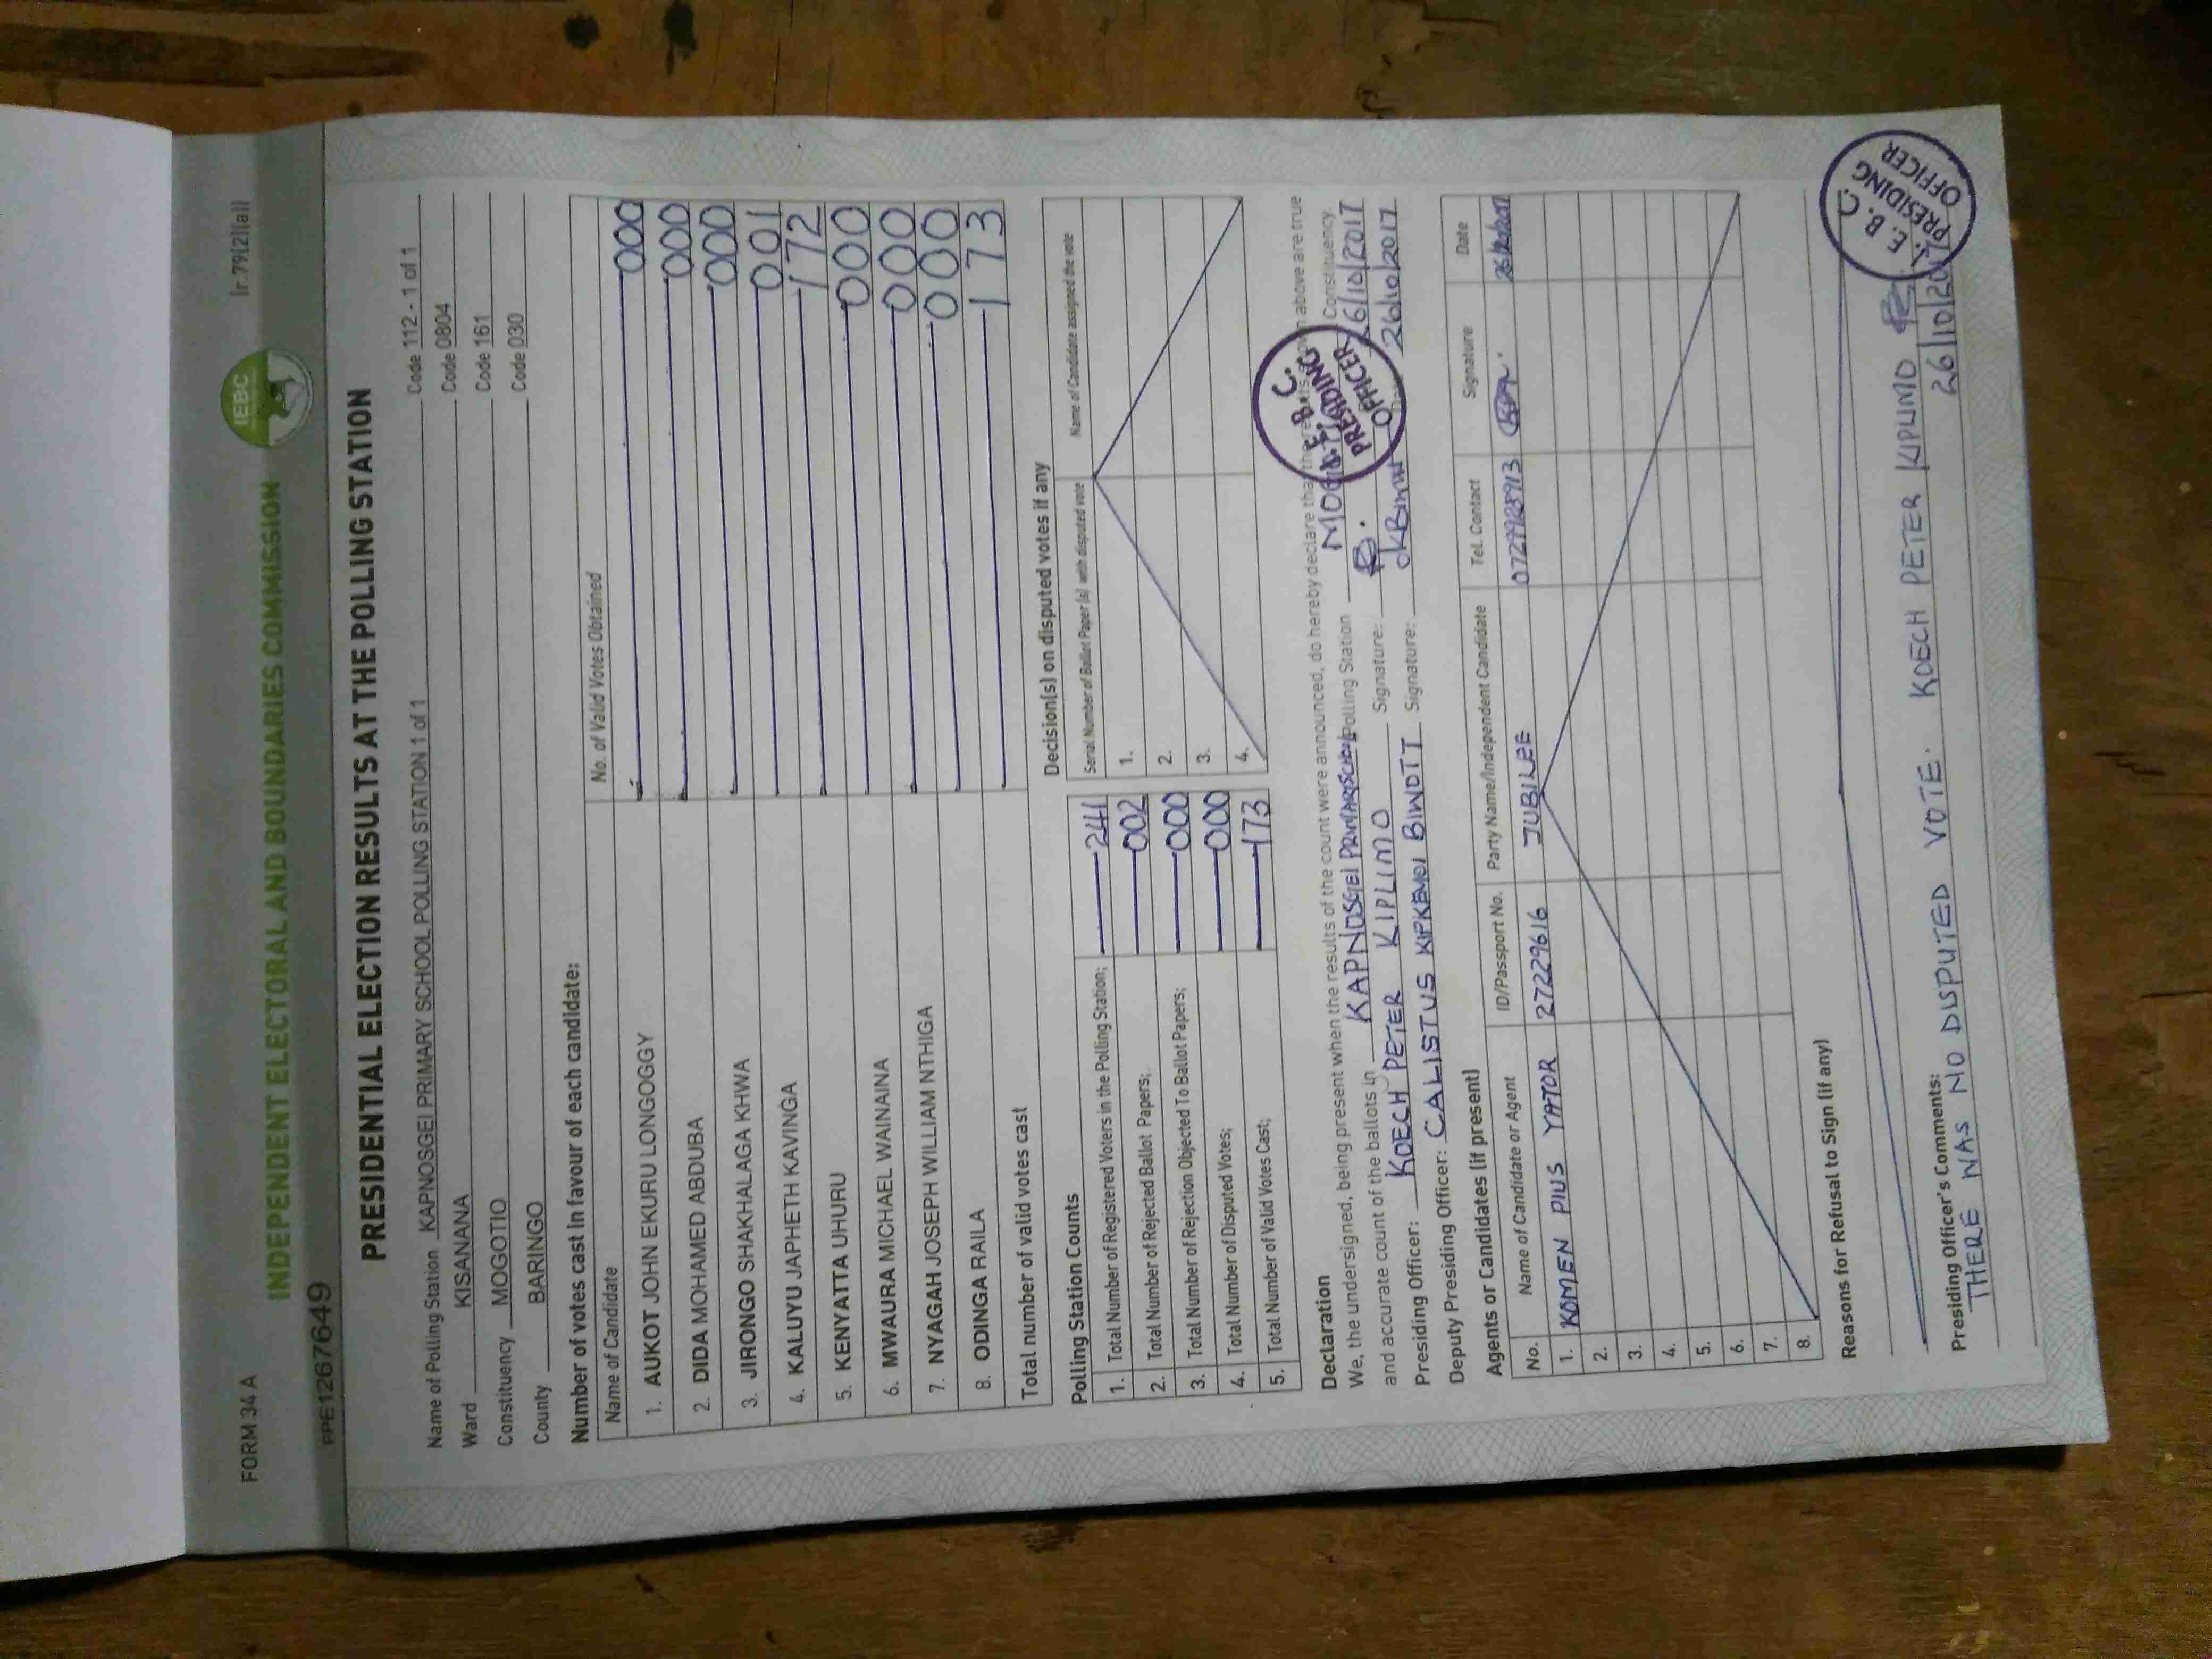 FORM 34 A
[r.79(2)(a)]
IEBC
INDEPENDENT ELECTORAL AND BOUNDARIES COMMISSION
PPE1267649
PRESIDENTIAL ELECTION RESULTS AT THE POLLING STATION
Name of Polling Station KAPNOSGEI PRIMARY SCHOOL POLLING STATION 1 of 1 Code 112 - 1 of 1
Ward KISANANA Code 0804
Constituency MOGOTIO Code 161
County BARINGO Code 030
Number of votes cast in favour of each candidate:
Name of Candidate No. of Valid Votes Obtained
1. AUKOT JOHN EKURU LONGOGGY 000
2. DIDA MOHAMED ABDUBA 000
3. JIRONGO SHAKHALAGA KHWA 000
4. KALUYU JAPHETH KAVINGA 001
5. KENYATTA UHURU 172
6. MWAURA MICHAEL WAINAINA 000
7. NYAGAH JOSEPH WILLIAM NTHIGA 000
8. ODINGA RAILA 000
Total number of valid votes cast 173
Polling Station Counts
1. Total Number of Registered Voters in the Polling Station; 241
2. Total Number of Rejected Ballot Papers; 002
3. Total Number of Rejection Objected To Ballot Papers; 000
4. Total Number of Disputed Votes; 000
5. Total Number of Valid Votes Cast; 173
Decision(s) on disputed votes if any
Serial Number of Ballot Paper (s) with disputed vote Name of Candidate assigned the vote
1.
2.
3.
4.
Declaration
We, the undersigned, being present when the results of the count were announced, do hereby declare that the results shown above are true
and accurate count of the ballots in KAPNOSGEI PRIMARY SCHOOL Polling Station Constituency.
Presiding Officer: KOECH PETER KIPLIMO Signature: 26/10/2017
Deputy Presiding Officer: CALISTUS KIPKEMOI BIWOTT Signature: Date 26/10/2017
I. E. B. C.
PRESIDING
OFFICER
Agents or Candidates (if present)
No. Name of Candidate or Agent ID/Passport No. Party Name/Independent Candidate Tel. Contact Signature Date
1. KOMEN PIUS YATOR 27229616 JUBILEE 0729928913 26/10/2017
2.
3.
4.
5.
6.
7.
8.
Reasons for Refusal to Sign (if any)
Presiding Officer's Comments:
THERE WAS NO DISPUTED VOTE. KOECH PETER KIPLIMO
26/10/2017
I. E. B. C.
PRESIDING
OFFICER